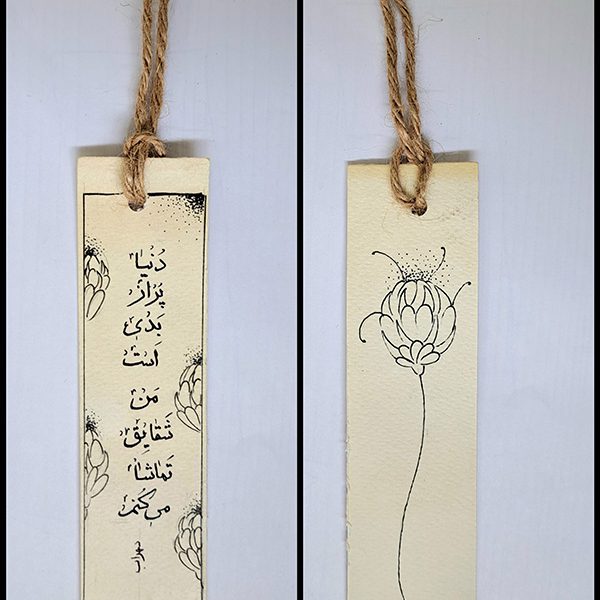 دُنیا
پُر از
بَدی
اَست
مَن
شَقایِق
تَماشا
می‌کُنَم
سهراب